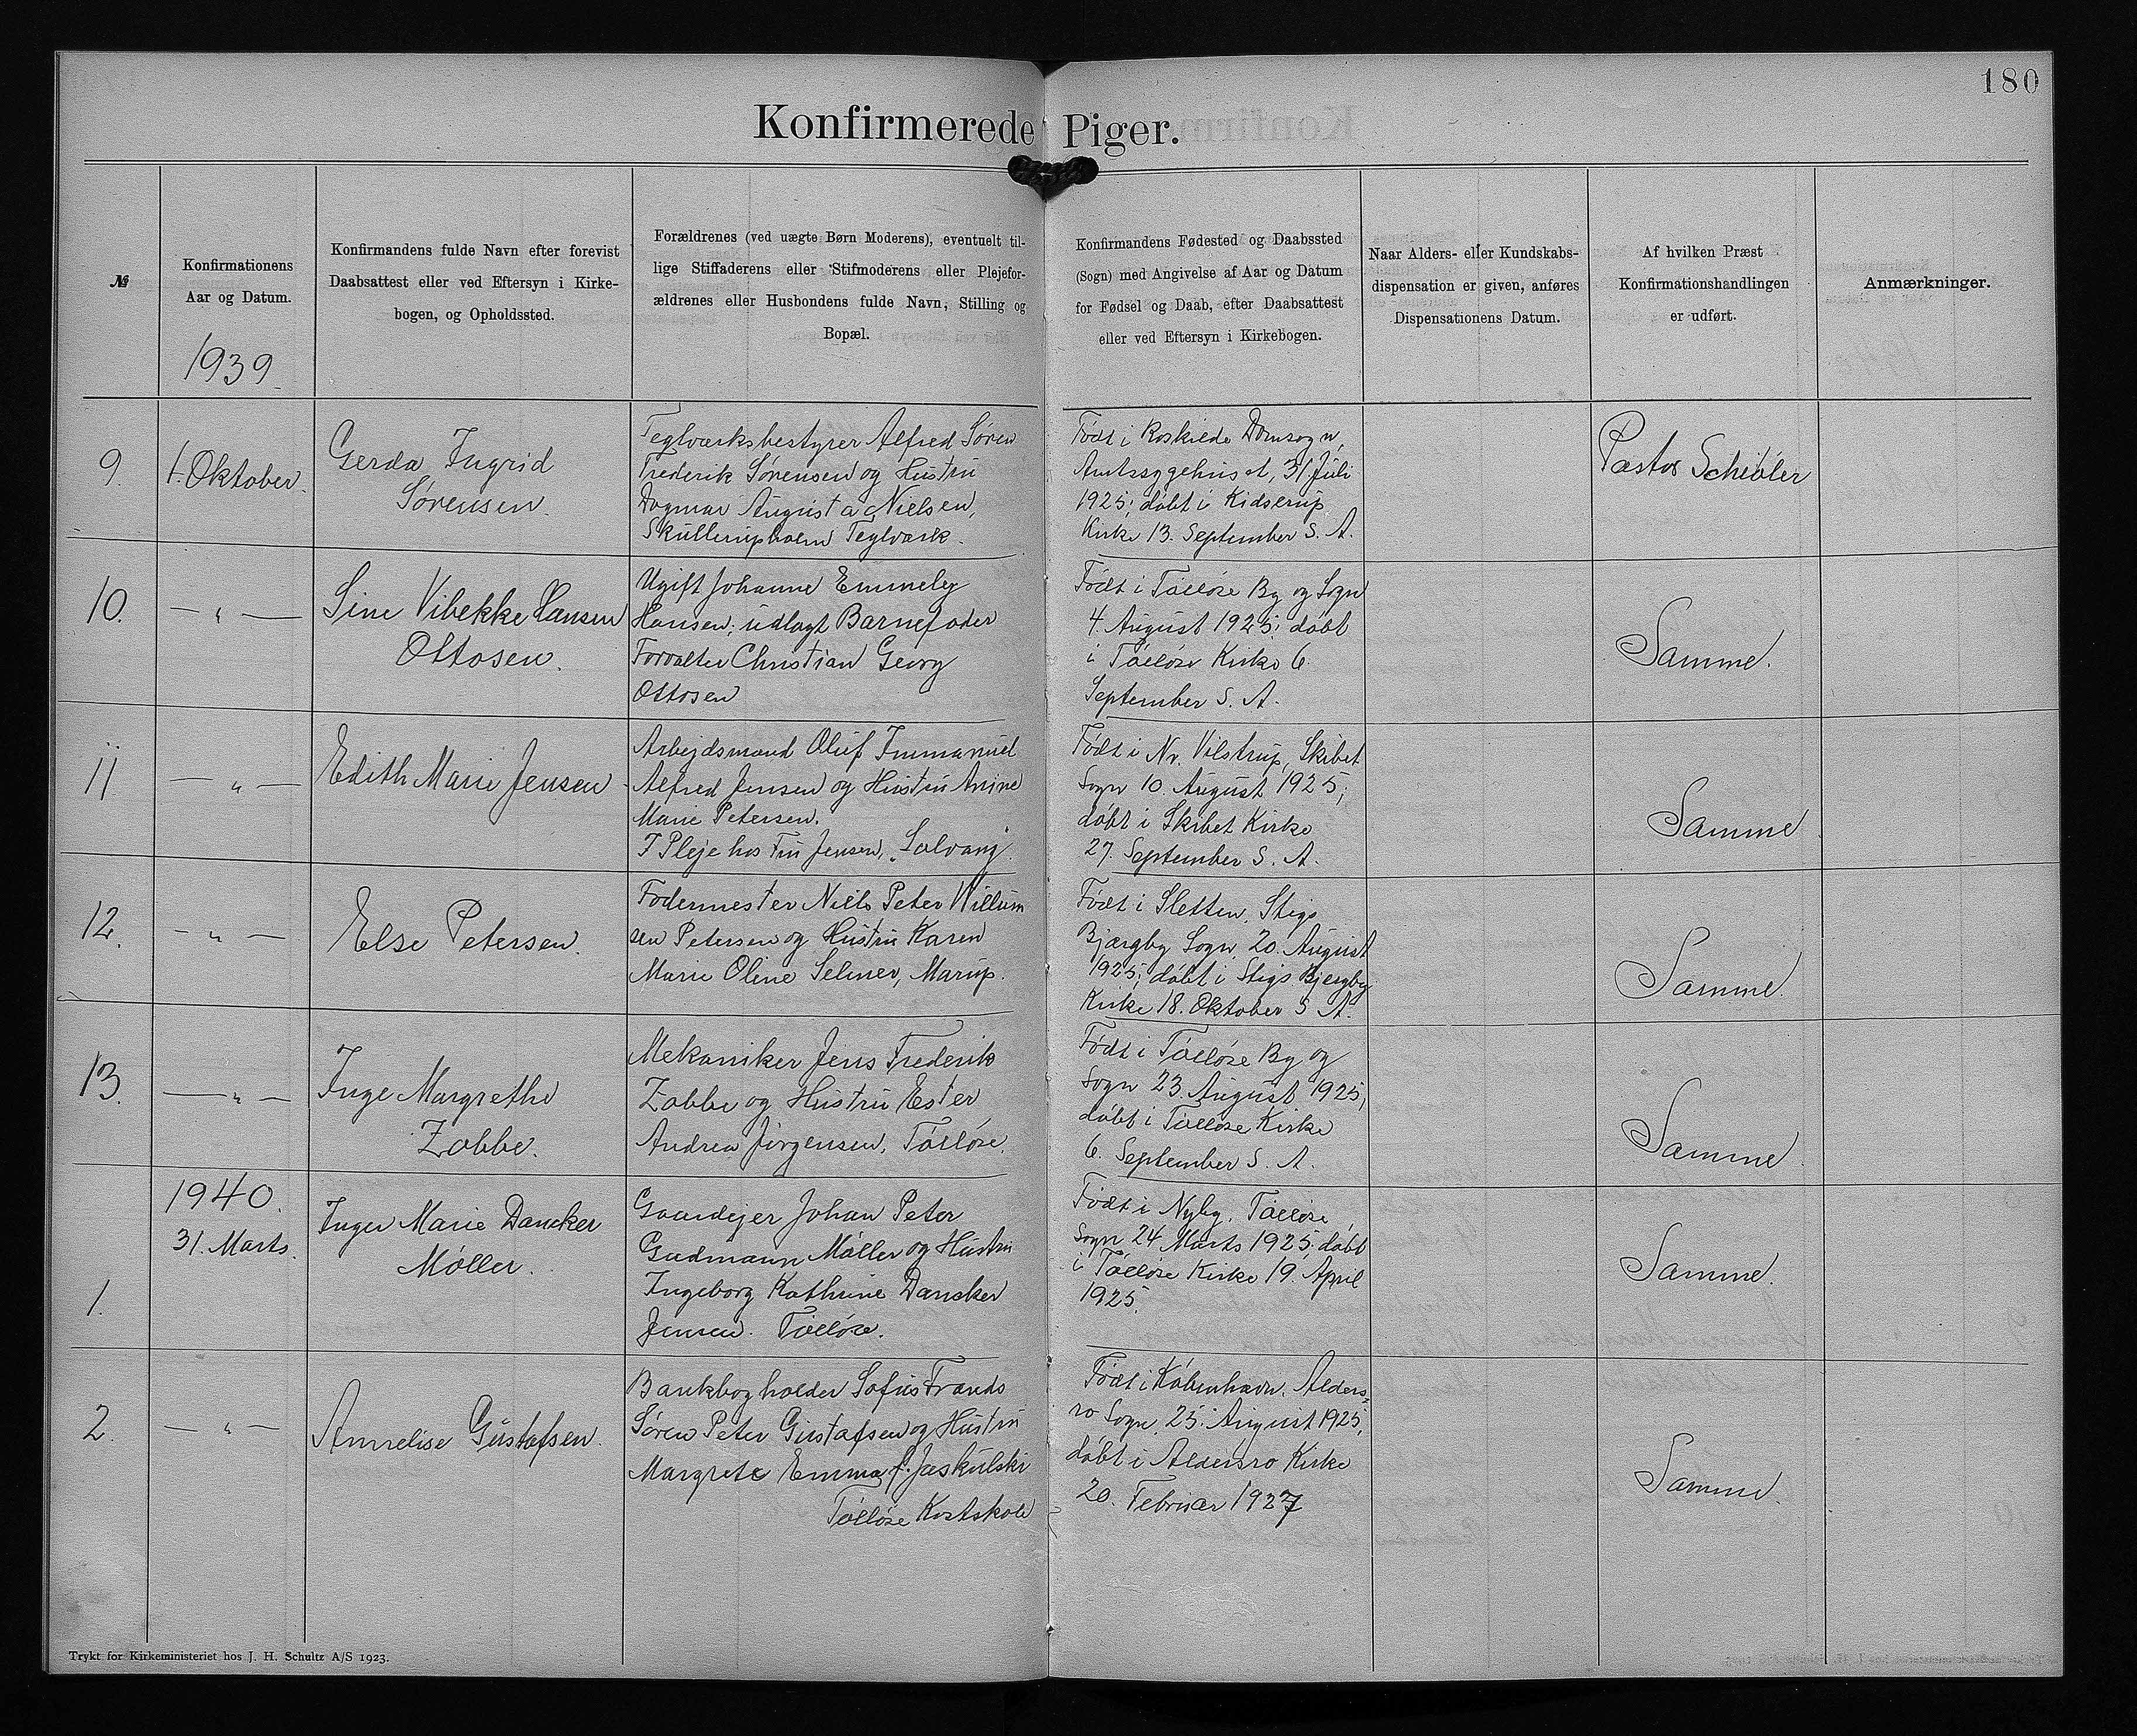 180
Konfirmerede Piger.
№
Konfirmationens
Aar og Datum.
1939.
Konfirmandens fulde Navn efter forevist
Daabsattest eller ved Eftersyn i Kirke-
bogen, og Opholdssted.
Forældrenes (ved uægte Børn Moderens), eventuelt til-
lige Stiffaderens eller Stifmoderens eller Plejefor-
ældrenes eller Husbondens fulde Navn, Stilling og
Bopæl.
Konfirmandens Fødested og Daabssted
(Sogn) med Angivelse af Aar og Datum
for Fødsel og Daab, efter Daabsattest
eller ved Eftersyn i Kirkebogen.
Naar Alders- eller Kundskabs-
dispensation er given, anføres
Dispensationens Datum.
Af hvilken Præst
Konfirmationshandlingen
er udført.
Anmærkninger.
9.
1. Oktober.
Gerda Ingrid
Sørensen.
Teglværksbestyrer Alfred Søren
Frederik Sørensen og Hustru
Dagmar Augusta Nielsen,
Skullerupholm Teglværk.
Født i Roskilde Domsogn,
Amtssygehuset, 31 Juli
1925; døbt i Kidserup
Kirke 13. September S. A.
Pastor Schiøler
10.
— " —
Sine Vibekke Hansen
Ottosen.
Ugift Johanne Emmely
Hansen; udlagt Barnefader
Forvalter Christian Georg
Ottosen
Født i Tølløse By og Sogn
4. August 1925; døbt
i Tølløse Kirke 6.
September S. A.
Samme.
11
— " —
Edith Marie Jensen
Arbejdsmand Oluf Immanuel
Alfred Jensen og Hustru Anine
Marie Petersen.
I Pleje hos Fru Jensen, "Solvang
Født i Nr. Vilstrup, Skibet
Sogn 10. August 1925;
døbt i Skibet Kirke
27. September S. A.
Samme
12.
— " —
Else Petersen.
Fodermester Niels Peter Willum
sen Petersen og Hustru Karen
Marie Oline Selmer, Marup.
Født i Sletten, Stigs
Bjærgby Sogn, 20. August
1925; døbt i Stigs Bjergby
Kirke 18. Oktober S A.
Samme.
13.
— " —
Inge Margrethe
Zobbe.
Mekaniker Jens Frederik
Zobbe og Hustru Ester
Andrea Jørgensen, Tølløse.
Født i Tølløse By og
Sogn 23. August 1925;
døbt i Tølløse Kirke
6. September S. A.
Samme.
1940.
31. Marts.
1.
Inger Marie Dancker
Møller.
Gaardejer Johan Peter
Gudmann Møller og Hustru
Ingeborg Kathrine Dancker
Jensen. Tølløse.
Født i Nyby, Tølløse
Sogn 24 Marts 1925; døbt
i Tølløse Kirke 19. April
1925.
Samme.
2.
— " —
Annelise Gustafsen.
Bankbogholder Sofus Frands
Søren Peter Gustafsen og Hustru
Margrete Emma f. Jaskulski
Tølløse Kostskole
Født i København, Alders-
ro Sogn, 25. August 1925,
døbt i Aldersro Kirke
20. Februar 1927
Samme.
Trykt for Kirkeministeriet hos J. H. Schultz A/S 1923.